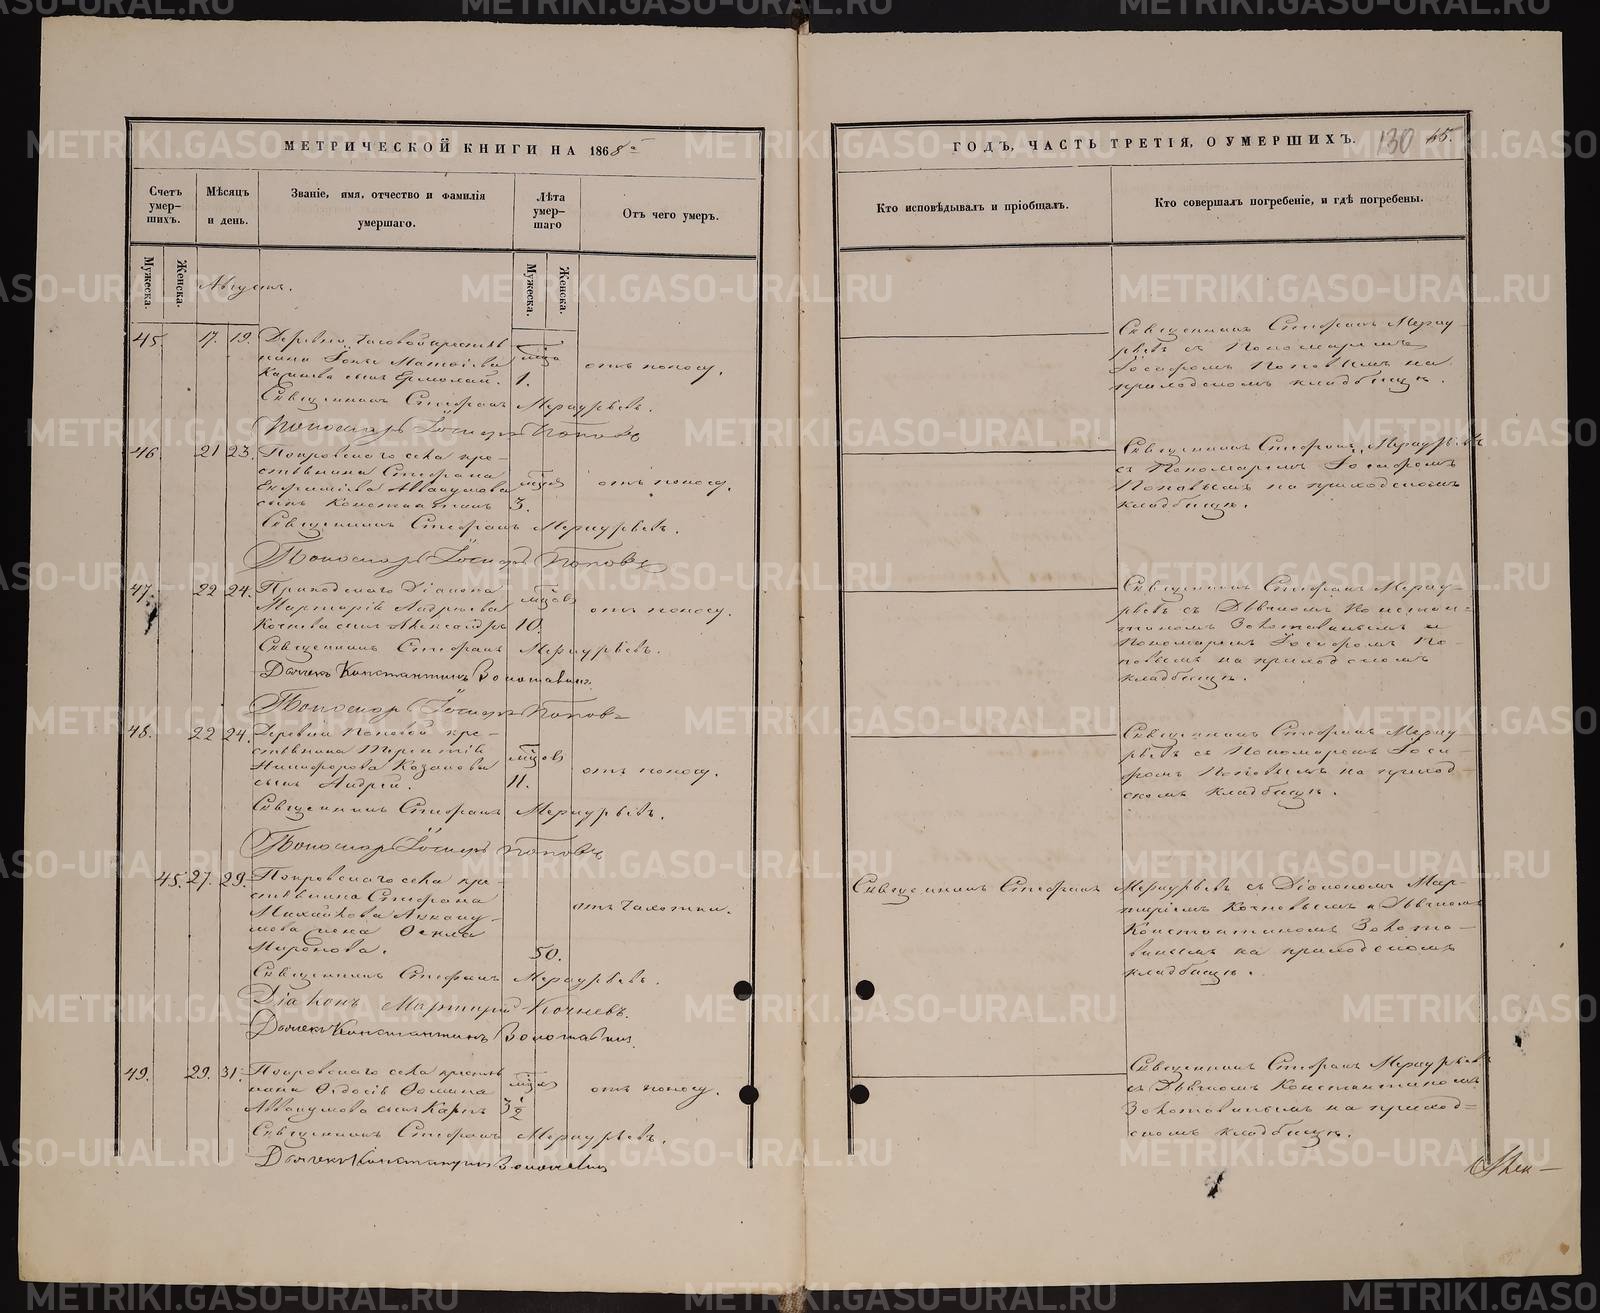 МЕТРИЧЕСКОЙ КНИГИ НА 1868
Счетъ умер-шихъ.
Мѣсяцъ и день.
Званіе, имя, отчество и фамилія умершаго.
Лѣта умер-шаго
Отъ чего умеръ.
Мужеска.
Женска.
Мужеска.
Женска.
Августъ.
45. 17. 19. Деревни
Матвѣева
сынъ Ермолай. 1. отъ поносу.
Священникъ Стефанъ Меркурьевъ.
Пономарь Іосифъ Поповъ
46. 21 23. Покровскаго села кре-
стьянина Стефана
Аввакумова отъ поносу.
сынъ Константинъ 3.
Священникъ Стефанъ Меркурьевъ.
Пономарь Іосифъ Поповъ
47. 22 24. Приходскаго Діакона
Мартирія Андреева мѣсяцовъ отъ поносу.
Кочнева сынъ Александръ 10.
Священникъ Стефанъ Меркурьевъ.
Дьячекъ Константинъ Золотавинъ
Пономарь Іосифъ Поповъ
48. 22 24. Деревни кре-
стьянина Терентія
Никифорова Казакова отъ поносу.
сынъ Андрей. 11.
Священникъ Стефанъ Меркурьевъ.
Пономарь Іосифъ Поповъ
45. 27. 29. Покровскаго села кре-
стьянина Стефана
Михайлова Аввакумова отъ чахотки.
жена Фекла
Миронова. 50.
Священникъ Стефанъ Меркурьевъ.
Діаконъ Мартирій Кочневъ.
Дьячекъ Константинъ Золотавинъ
49. 29. 31. Покровскаго села крестья-
нина Ѳедосія Фомина отъ поносу.
Аввакумова сынъ Карпъ 3½
Священникъ Стефанъ Меркурьевъ.
Дьячекъ Константинъ Золотавинъ
ГОДЪ, ЧАСТЬ ТРЕТІЯ, О УМЕРШИХЪ. 130
Кто исповѣдывалъ и пріобщалъ.
Кто совершалъ погребеніе, и гдѣ погребены.
Священникъ Стефанъ Мерку-
рьевъ съ Пономаремъ
Іосифомъ Поповымъ на
приходскомъ кладбищѣ.
Священникъ Стефанъ Меркурьевъ
съ Пономаремъ Іосифомъ
Поповымъ на приходскомъ
кладбищѣ.
Священникъ Стефанъ Мерку-
рьевъ съ Дьячкомъ Констан-
тиномъ Золотавинымъ и
Пономаремъ Іосифомъ По-
повымъ на приходскомъ
кладбищѣ.
Священникъ Стефанъ Мерку-
рьевъ съ Пономаремъ Іоси-
фомъ Поповымъ на приход-
скомъ кладбищѣ.
Священникъ Стефанъ Меркурьевъ съ Діакономъ Мар-
тиріемъ Кочневымъ и Дьячкомъ
Константиномъ Золота-
винымъ на приходскомъ
кладбищѣ.
Священникъ Стефанъ Меркурьевъ
съ Дьячкомъ Константиномъ
Золотавинымъ на приход-
скомъ кладбищѣ.
METRIKI.GASO-URAL.RU